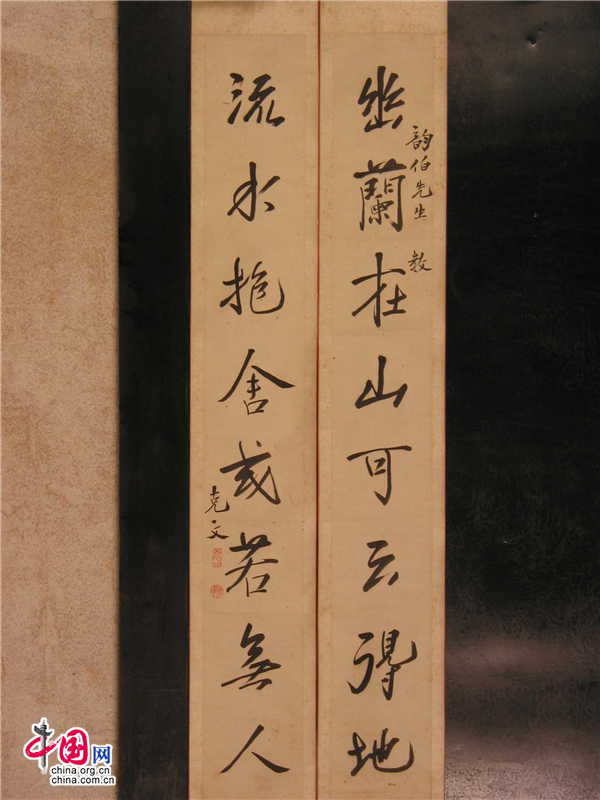 幽蘭在山可云得地
韵伯先生 教
流水抱舍或若無人
克文
中国网
china.org.cn
china.com.cn